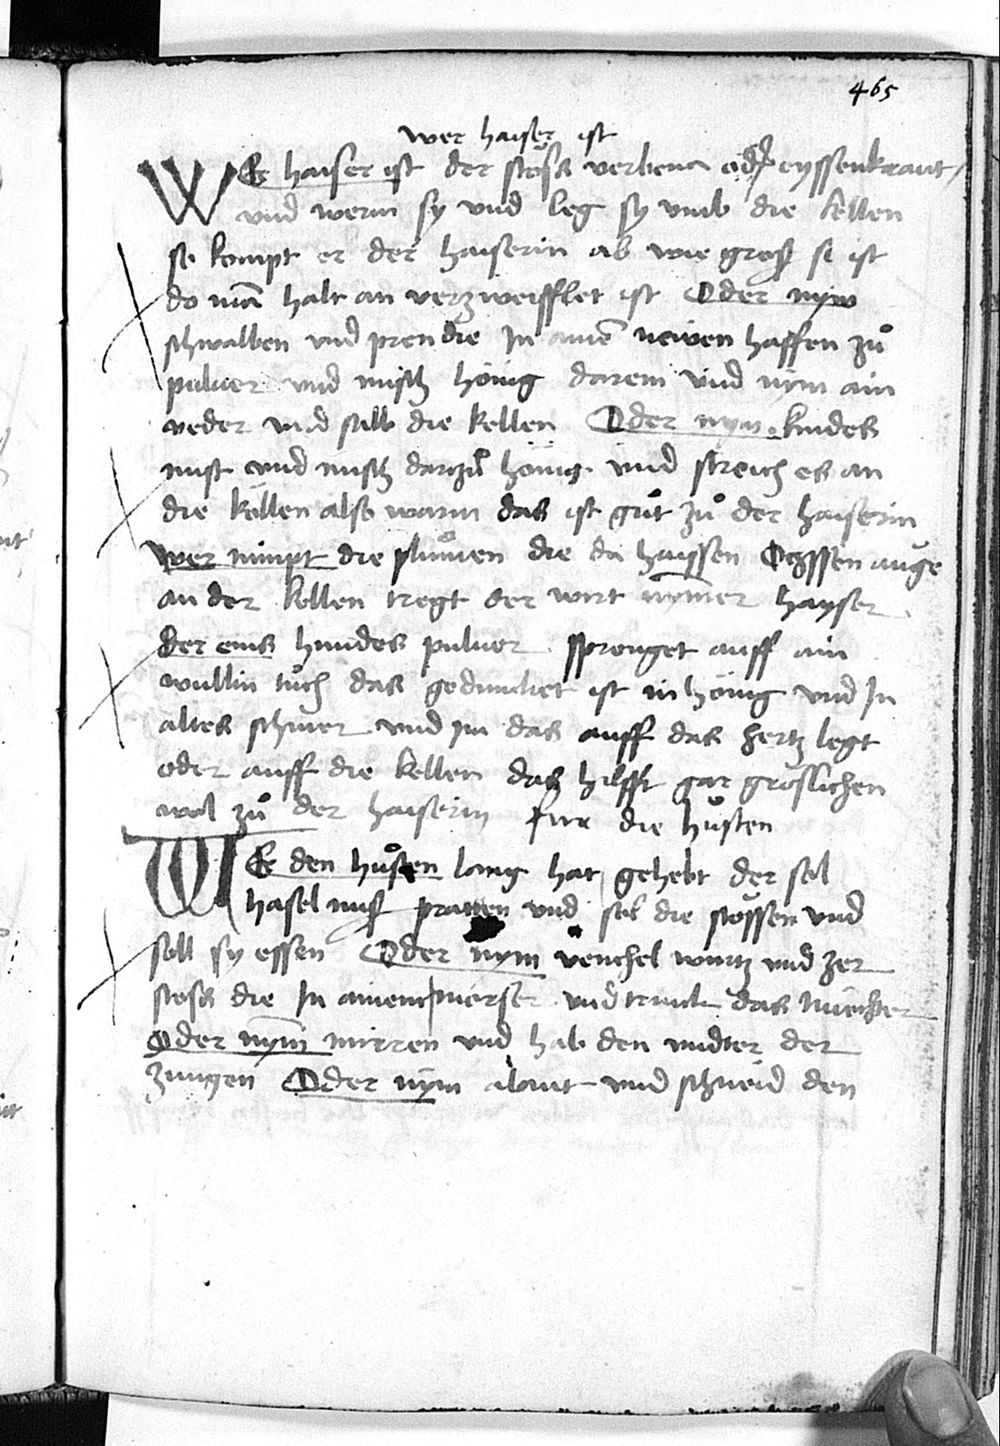 465
wer haiser ist
WEr haiser ist der stoss verbena oder eyssenkraut
vnd werm sy vnd leg sy vmb die kellen
so kompt er der haiserin ab wie gross si ist
do man halt an verzweifflet ist Oder nym
schwalben vnd pren die In ainem newen haffen zů
puluer vnd misch hönig darein vnd nym ain
veder vnd salb die kellen Oder nym kindes
mist vnd misch dartzů hönig vnd streich es an
die kellen also warm das ist gůt zů der haiserin
wer nimpt die plůmen die da haissen Ochssen auge
an der kellen tregt der wirt nymer hayser
der eins hundes puluer sprenget auff ain
wullin tůch das geduncket ist in hönig vnd In
altes schmer vnd im das auff das hertz legt
oder auff die kellen das hilfft gar gröslichen
wol zů der haiserin fur die hůsten
WEr den hůsten lang hat gehebt der sol
hasel nuss pratten vnd sol die stossen vnd
soll sy essen Oder nym venchel wurtz vnd zer
stoss die In ainem mörser vnd trinck das nüechter
Oder nym mirren vnd hab den vndter der
zungen Oder nym alant vnd schneid den